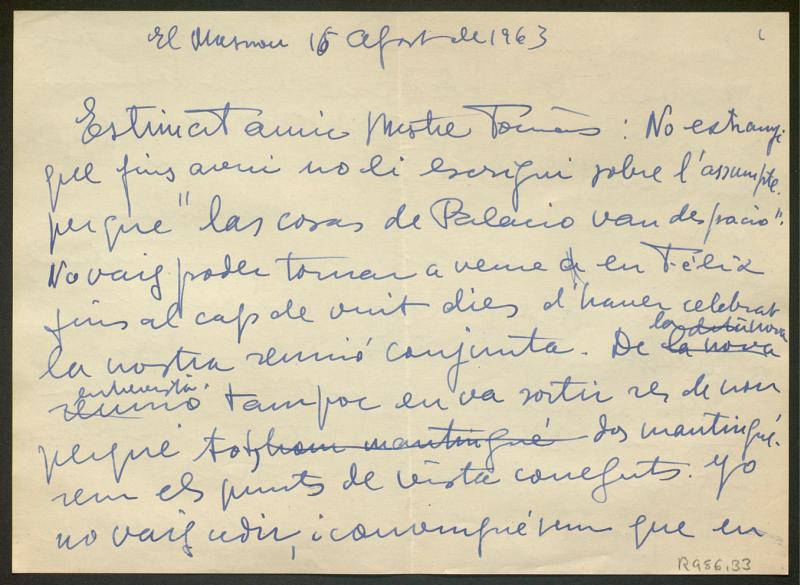 El Masnou 15 Agost de 1963
Estimat amic Mestre Tomàs : No estrangi
que fins avui no li escrigui sobre l'assumpte.
perque "las cosas de Palacio van despacio".
No vaig poder tornar a veure a en Fèlix
fins al cap de vuit dies d'haver celebrat
la nostra reunió conjunta. De la nova
la nova
entrevista
reunió tampoc en va sortir res de nou
perqué tots hom mantingué dos mantingué-
rem els punts de vista coneguts. Yo
no vaig cedir, i convinguérem que en
R986,33